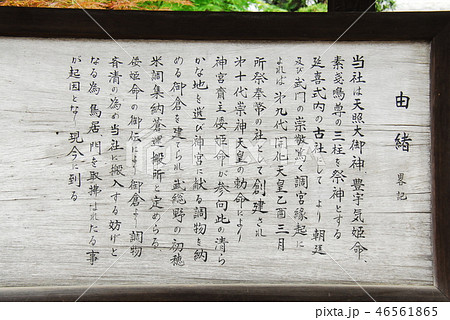 由緒 畧記
当社は天照大御神、豊宇気姫命、
素戔嗚尊の三柱を祭神とする
延喜式内の古社にして より朝廷
及び武門の崇敬篤く調宮縁起に
よれば 第九代 開化天皇乙酉三月
所祭奉幣の社として創建され
第十代崇神天皇の勅命により
神宮斎主倭姫命が参向此の清ら
かな地を選び神宮に献る調物を納
める御倉を建てられ武総野の初穂
米調集納蒼運搬所と定めらる
倭姫命の御伝により御倉より調物
斉清の為め当社に搬入する妨げと
なる為 鳥居 門を取払はれたる事
が起因となり現今に到る
46561865